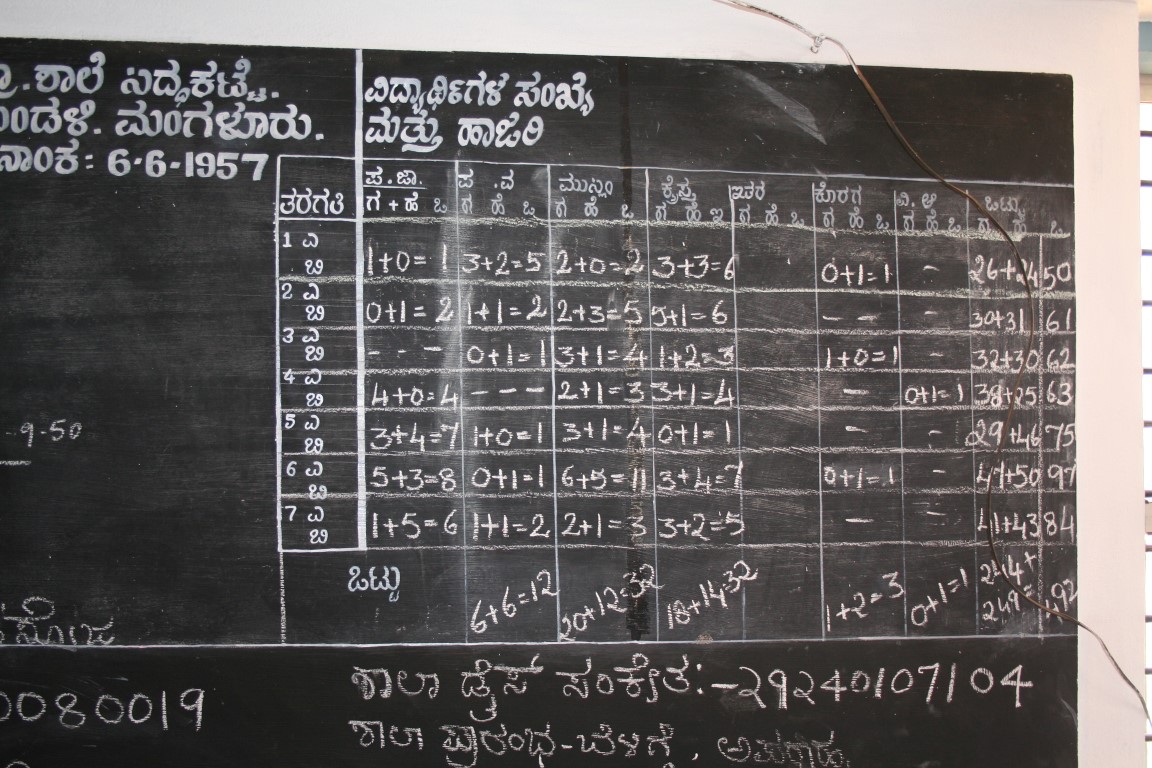 ಶಾಲೆ ಸಿದ್ಧಕಟ್ಟೆ.
ಮಂಗಳೂರು.
6-6-1957
ವಿದ್ಯಾರ್ಥಿಗಳ ಸಂಖ್ಯೆ
ಮತ್ತು ಹಾಜರಿ
ತರಗತಿ ಪ.ಜಾ. ಪ.ವ ಮುಸ್ಲಿಂ ಕ್ರೈಸ್ತ ಇತರ ಕೊರಗ ಒಟ್ಟು
ಗ + ಹೆ ಒ ಗ ಹೆ ಒ ಗ ಹೆ ಒ ಗ ಹೆ ಗ ಹೆ ಒ ಗ ಹೆ ಒ ಗ ಹೆ ಒ ಗ ಹೆ ಒ
1 ಎ
ಬಿ 1+0=1 3+2=5 2+0=2 3+3=6 0+1=1 - 26+24 50
2 ಎ
ಬಿ 0+1=2 1+1=2 2+3=5 5+1=6 - - 30+31 61
3 ಎ
ಬಿ - - - 0+1=1 3+1=4 1+2=3 1+0=1 - 32+30 62
4 ಎ
ಬಿ 4+0=4 - - - 2+1=3 3+1=4 - 0+1=1 38+25 63
5 ಎ
ಬಿ 3+4=7 1+0=1 3+1=4 0+1=1 - - 29+46 75
6 ಎ
ಬಿ 5+3=8 0+1=1 6+5=11 3+4=7 0+1=1 - 47+50 97
7 ಎ
ಬಿ 1+5=6 1+1=2 2+1=3 3+2=5 - 41+43 84
ಒಟ್ಟು 6+6=12 20+12=32 18+14=32 1+2=3 0+1=1 244+
249= 492
-9-50
0080019
ಶಾಲಾ ಡೈಸ್ ಸಂಕೇತ:-29240107104
ಶಾಲಾ ಪ್ರಾರಂಭ-ಬೆಳಗ್ಗೆ,